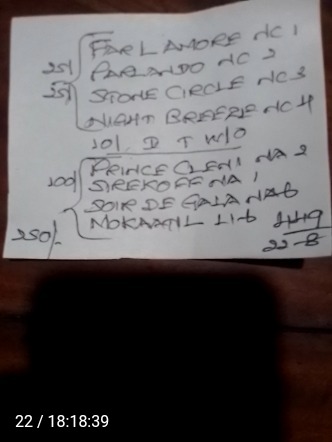 25/ FAR L AMORE NC 1
PARLANDO NC 2
25/ STONE CIRCLE NC 3
NIGHT BREEZE NC 4
10/. D T W/O
PRINCE CLENI NA 2
100/ SIREKOFF NA 1
SOIR DE GALA NA 6
MOKAATIL LI-6
250/-
22-B
22 / 18:18:39